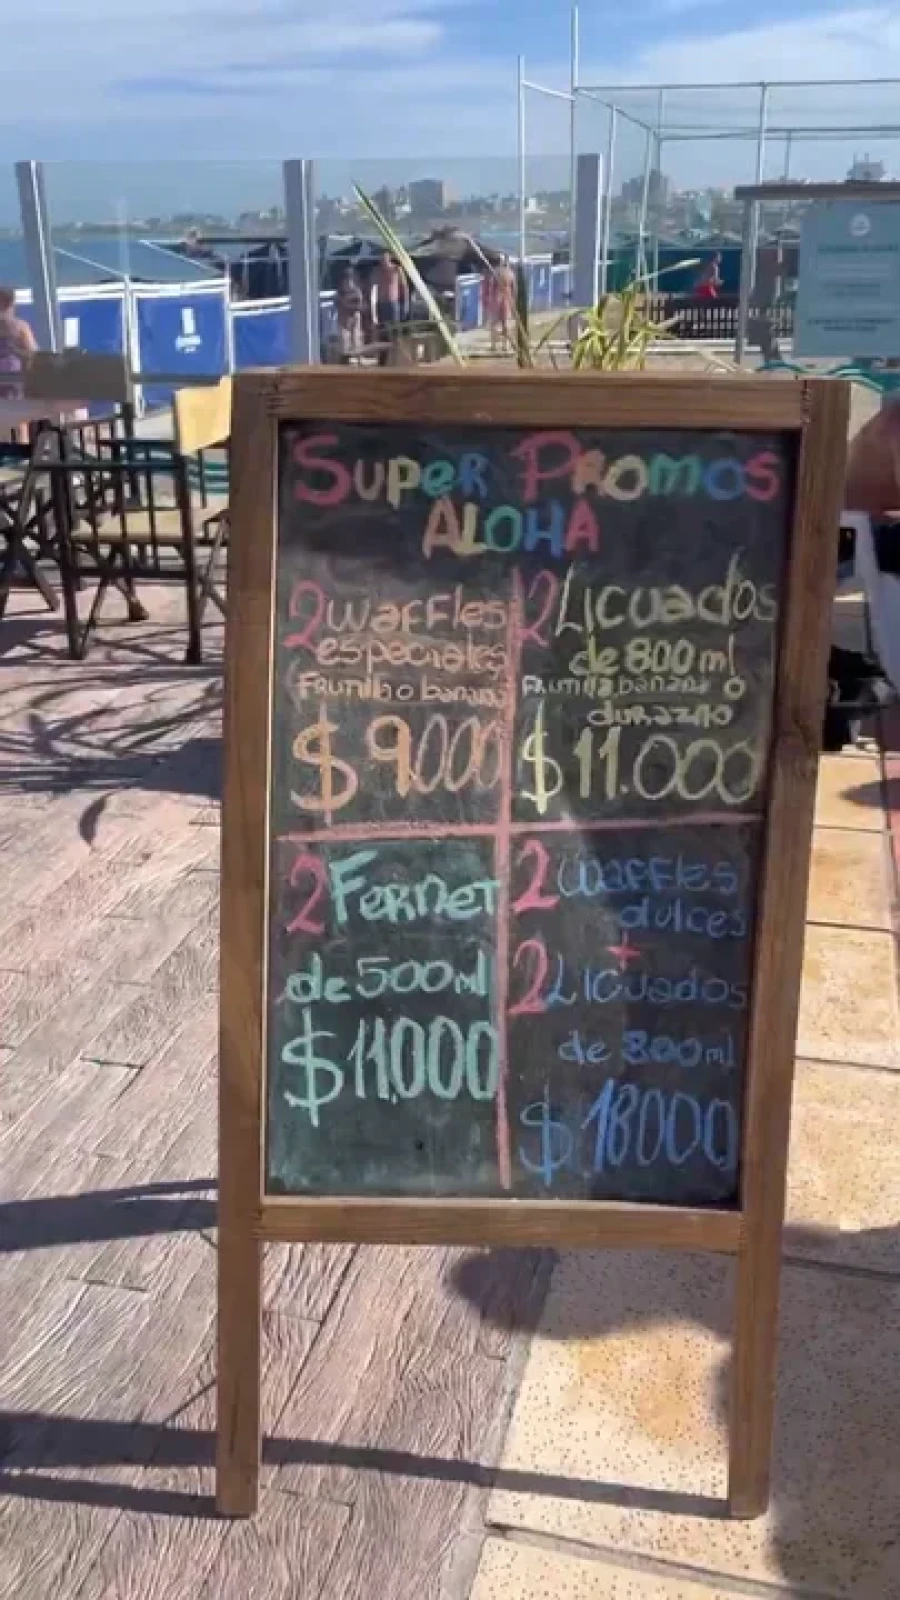 Super Promos
ALOHA
2 Waffles
especiales
Frutilla o banana
$ 9000
2 Licuados
de 800 ml
Frutilla, banana o
durazno
$ 11.000
2 Fernet
de 500 ml
$ 11.000
2 Waffles
dulces
+
2 Licuados
de 800 ml
$ 18000